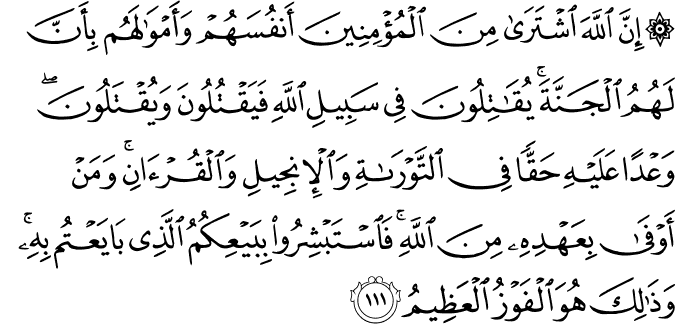 ۞ إِنَّ ٱللَّهَ ٱشْتَرَىٰ مِنَ ٱلْمُؤْمِنِينَ أَنفُسَهُمْ وَأَمْوَٰلَهُم بِأَنَّ
لَهُمُ ٱلْجَنَّةَ ۚ يُقَـٰتِلُونَ فِى سَبِيلِ ٱللَّهِ فَيَقْتُلُونَ وَيُقْتَلُونَ ۖ
وَعْدًا عَلَيْهِ حَقًّا فِى ٱلتَّوْرَىٰةِ وَٱلْإِنجِيلِ وَٱلْقُرْءَانِ ۚ وَمَنْ
أَوْفَىٰ بِعَهْدِهِۦ مِنَ ٱللَّهِ ۚ فَٱسْتَبْشِرُوا۟ بِبَيْعِكُمُ ٱلَّذِى بَايَعْتُم بِهِۦ ۚ
وَذَٰلِكَ هُوَ ٱلْفَوْزُ ٱلْعَظِيمُ ١١١